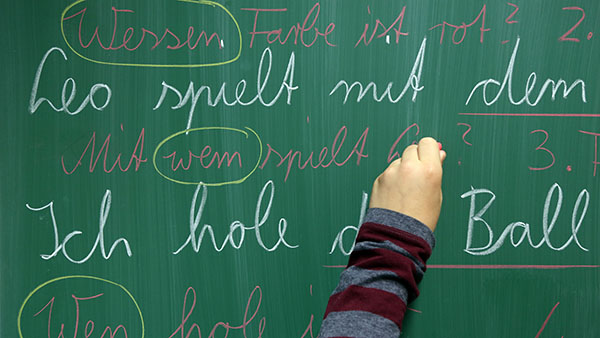 Wessen Farbe ist rot? 2.
Leo spielt mit dem
Mit wem spielt ? 3.
Ich hole Ball
Wen hole